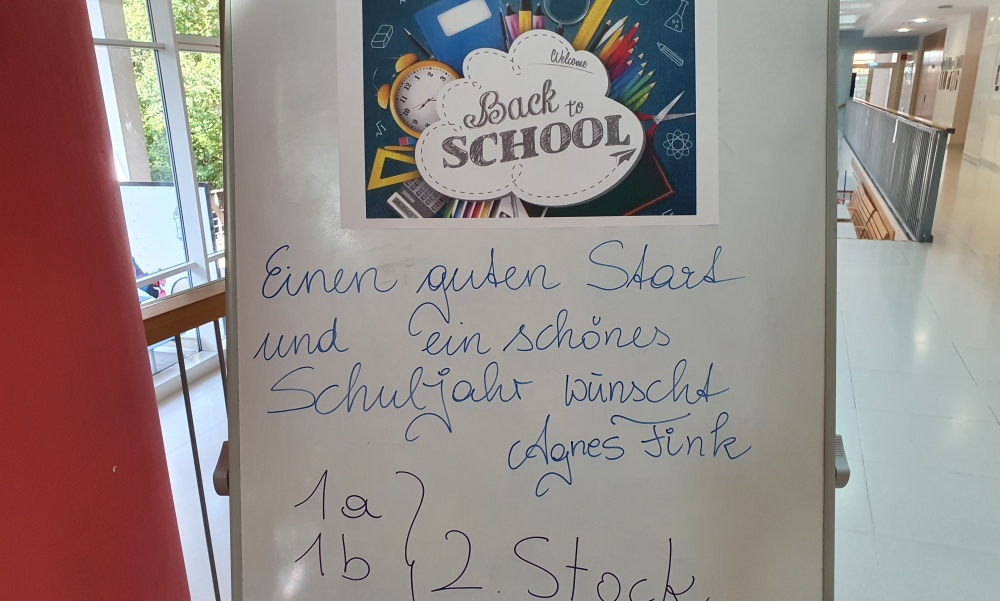 Welcome
Back to
SCHOOL
Einen guten Start
und ein schönes
Schuljahr wünscht
Agnes Fink
1a
1b } 2. Stock